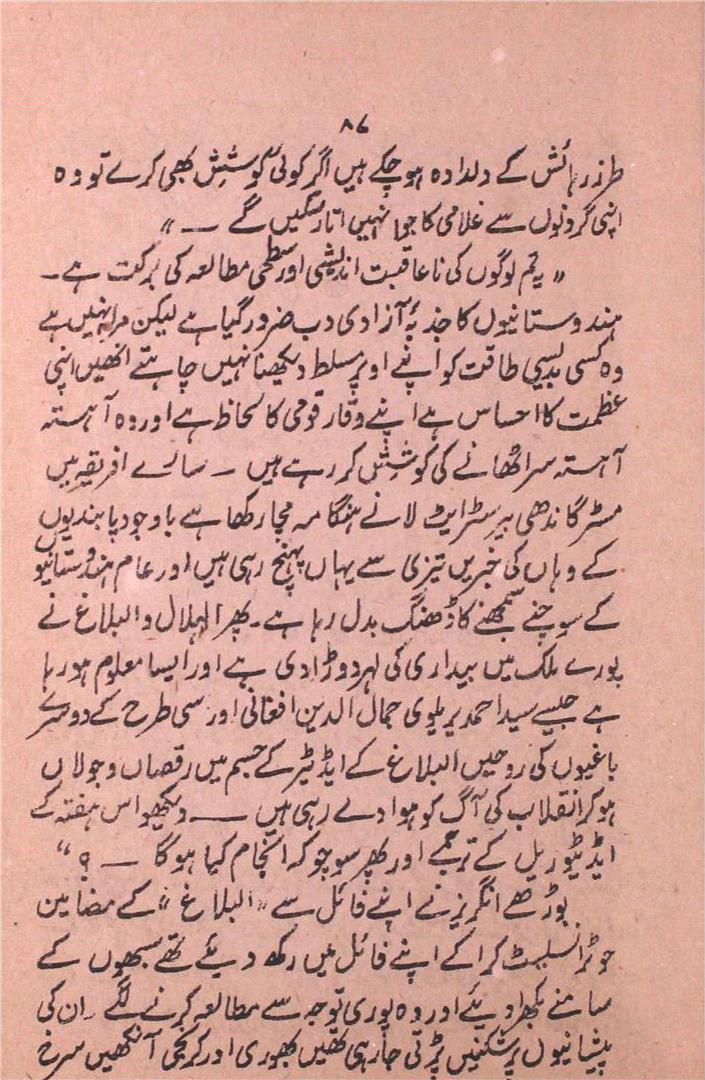 ۸۷
طرز رہائش کے دلدادہ ہو چکے ہیں اگر کوئی کوشش بھی کرے تو وہ
اپنی گردنوں سے غلامی کا جوا نہیں اتار سکیں گے — "
" یہ تم لوگوں کی ناعاقبت اندیشی اور سطحی مطالعہ کی برکت ہے ۔
ہندوستانیوں کا جذبۂ آزادی دب ضرور گیا ہے لیکن مرا نہیں ہے
وہ کسی بدیسی طاقت کو اپنے اوپر مسلط دیکھنا نہیں چاہتے انھیں اپنی
عظمت کا احساس ہے اپنے وقار قومی کا لحاظ ہے اور وہ آہستہ
آہستہ سر اٹھانے کی کوشش کر رہے ہیں ۔ سارے افریقہ میں
مسٹر گاندھی بیرسٹر ایٹ لا نے ہنگامہ مچا رکھا ہے باوجود پابندیوں
کے وہاں کی خبریں تیزی سے یہاں پہنچ رہی ہیں اور عام ہندوستانیوں
کے سوچنے سمجھنے کا ڈھنگ بدل رہا ہے ۔ پھر الہلال و البلاغ نے
پورے ملک میں بیداری کی لہر دوڑا دی ہے اور ایسا معلوم ہو رہا
ہے جیسے سید احمد بریلوی جمال الدین افغانی اور اسی طرح کے دوسرے
باغیوں کی روحیں البلاغ کے ایڈیٹر کے جسم میں رقصاں و جولاں
ہو کر انقلاب کی آگ کو ہوا دے رہی ہیں — دیکھو اس ہفتہ کے
ایڈیٹوریل کے ترجمے اور پھر سوچو کہ انجام کیا ہوگا — ؟ "
بوڑھے انگریز نے اپنے فائل سے "البلاغ" کے مضامین
جو ٹرانسلیٹ کرا کے اپنے فائل میں رکھ دیئے تھے سبھوں کے
سامنے بکھرا دیئے اور وہ پوری توجہ سے مطالعہ کرنے لگے ۔ ان کی
پیشانیوں پر شکنیں پڑتی جا رہی تھیں بھوری اور کرنجی آنکھیں سرخ